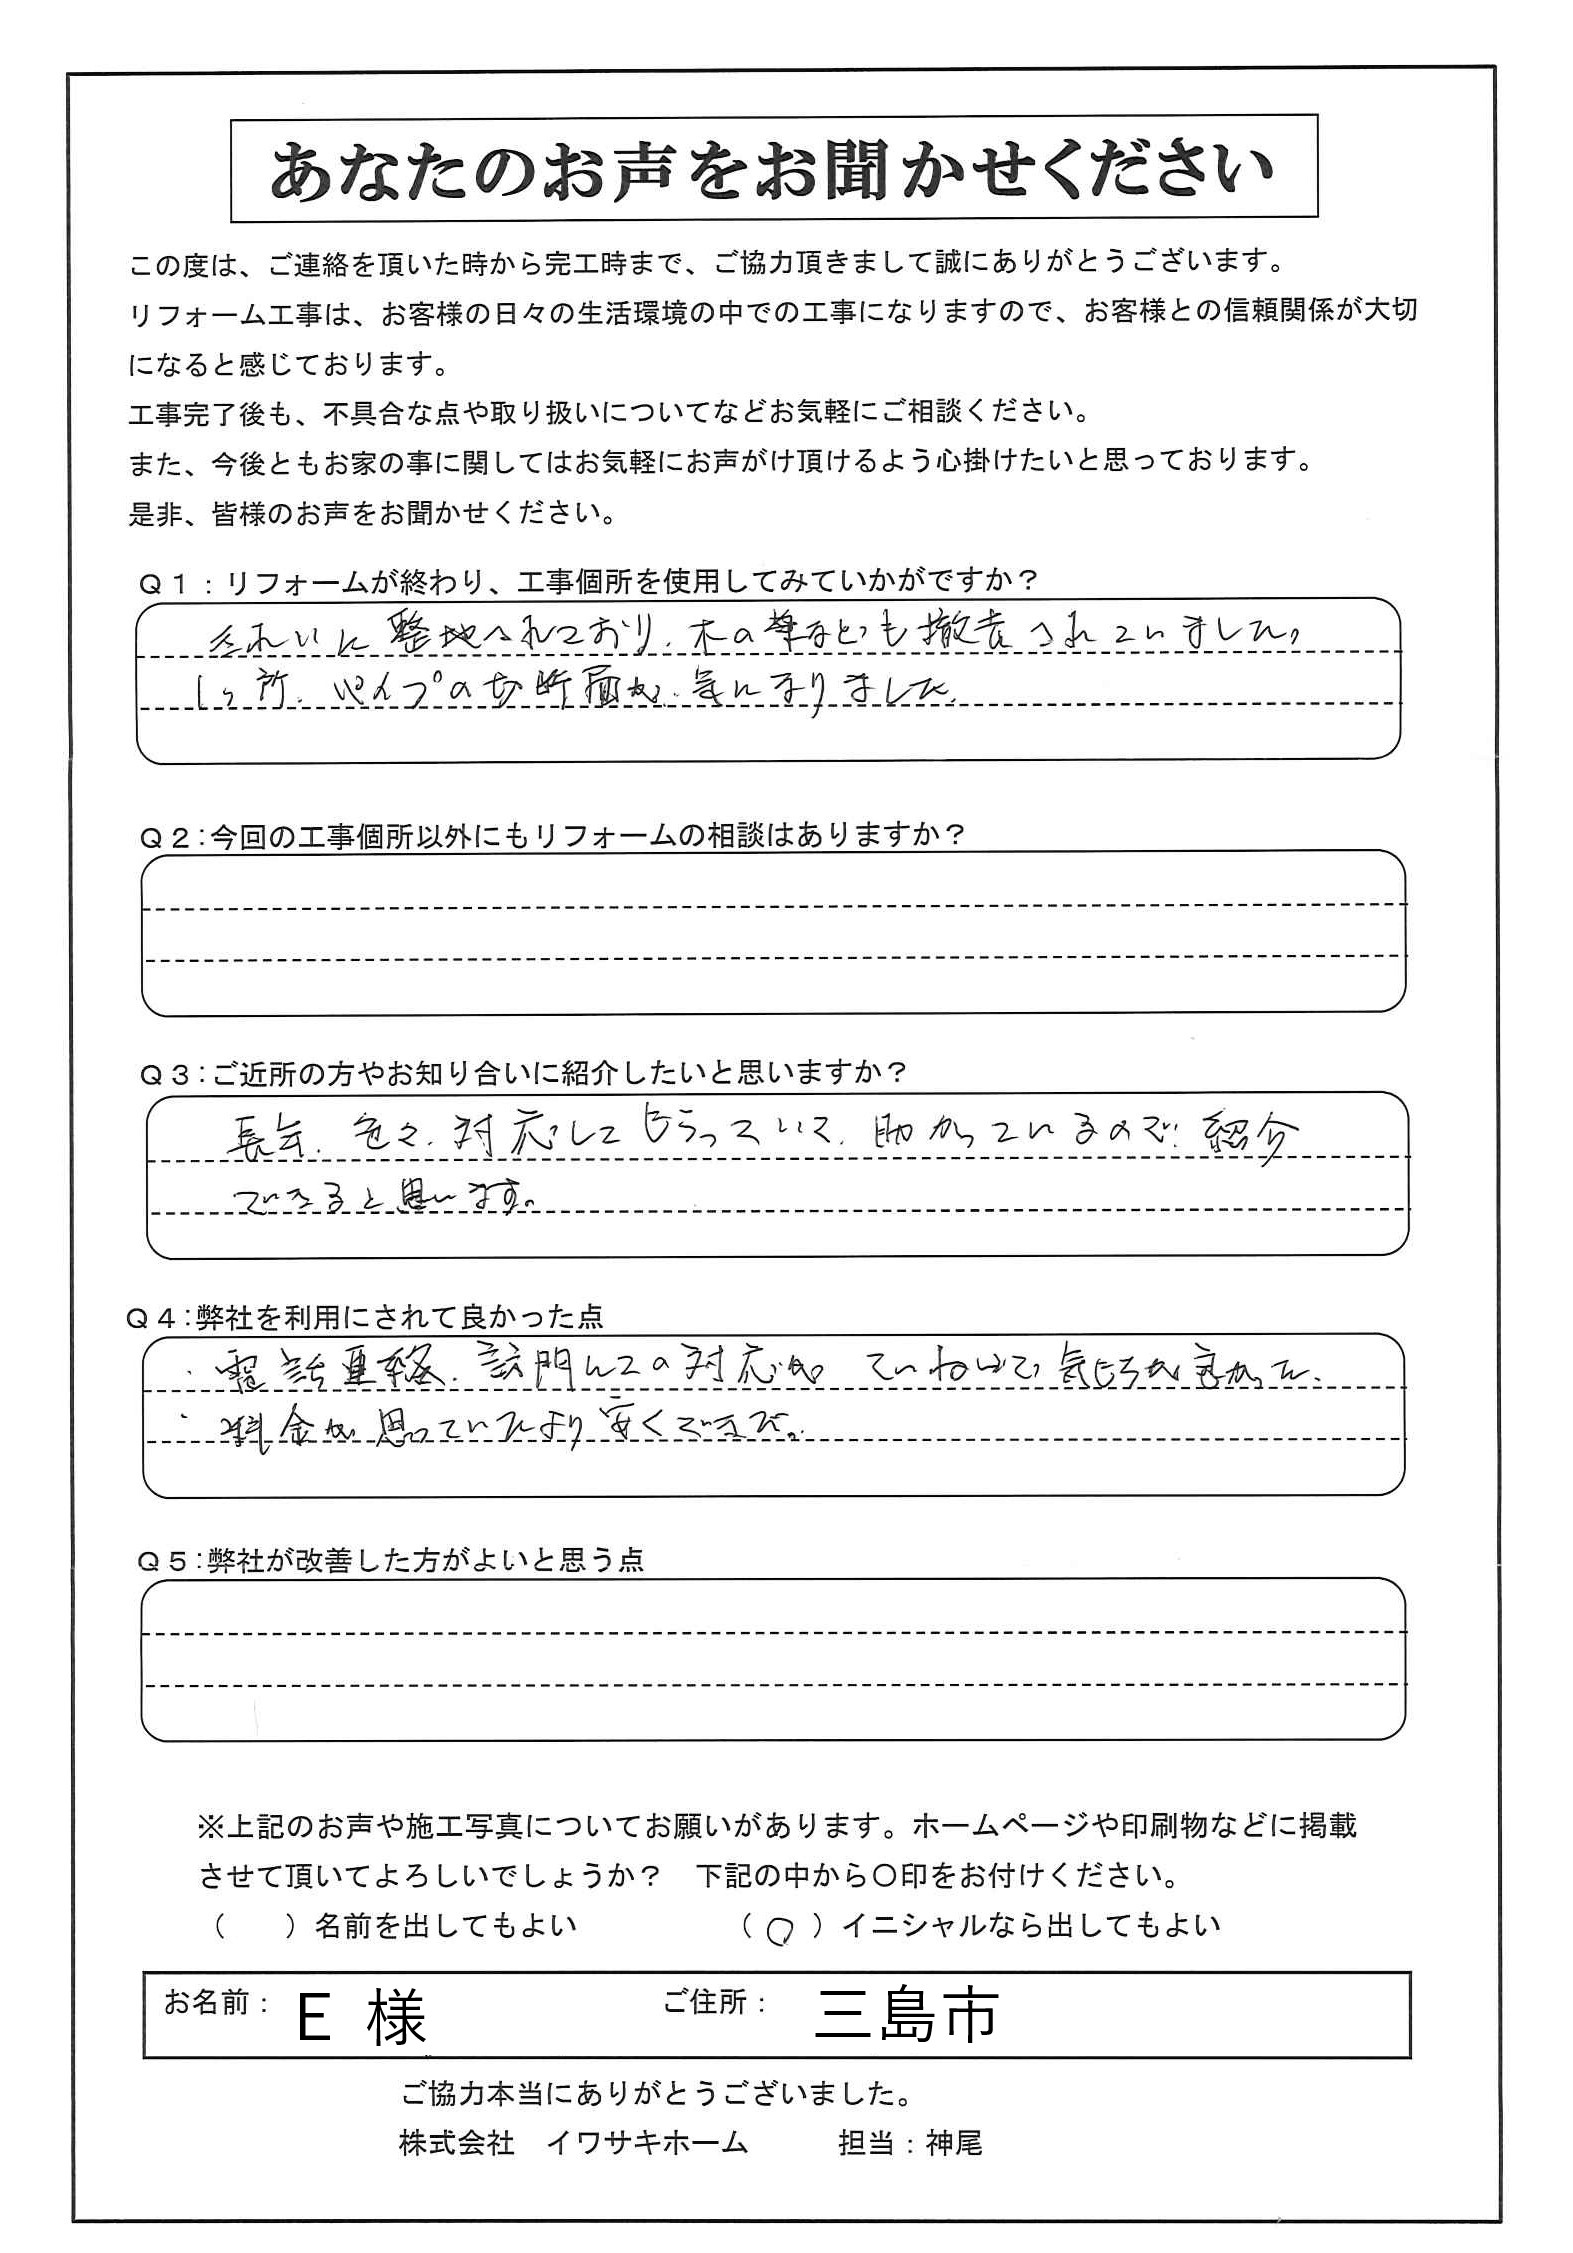 あなたのお声をお聞かせください
この度は、ご連絡を頂いた時から完工時まで、ご協力頂きまして誠にありがとうございます。
リフォーム工事は、お客様の日々の生活環境の中での工事になりますので、お客様との信頼関係が大切
になると感じております。
工事完了後も、不具合な点や取り扱いについてなどお気軽にご相談ください。
また、今後ともお家の事に関してはお気軽にお声がけ頂けるよう心掛けたいと思っております。
是非、皆様のお声をお聞かせください。
Q1：リフォームが終わり、工事個所を使用してみていかがですか？
きれいに整地されており、木の なども撤去されていました。
1ヶ所、パイプの切断面が、気になりました。
Q2：今回の工事個所以外にもリフォームの相談はありますか？
Q3：ご近所の方やお知り合いに紹介したいと思いますか？
長年、色々、対応してもらっていて、助かっているので、紹介
できると思います。
Q4：弊社を利用にされて良かった点
・電話連絡、訪問しての対応が、ていねいで、気もちが良かった。
・料金が思っていたより安くできた。
Q5：弊社が改善した方がよいと思う点
※上記のお声や施工写真についてお願いがあります。ホームページや印刷物などに掲載
させて頂いてよろしいでしょうか？　下記の中から〇印をお付けください。
（　　）名前を出してもよい　　　　　（〇）イニシャルなら出してもよい
お名前： E 様　　　　ご住所： 三島市
ご協力本当にありがとうございました。
株式会社　イワサキホーム　　　担当：神尾